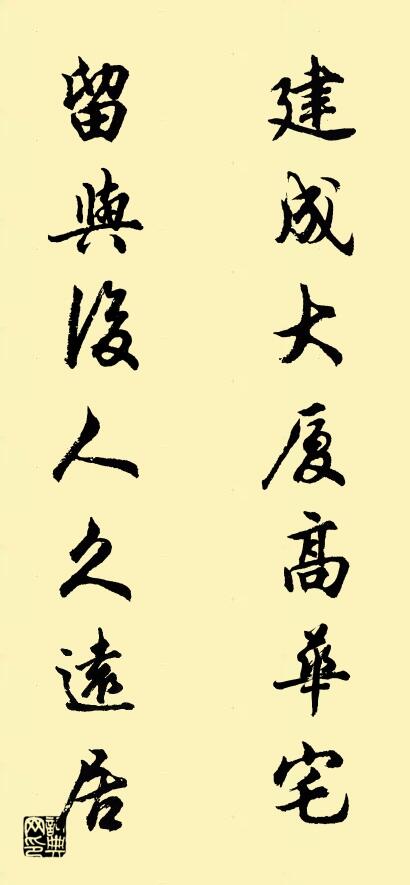 建成大厦高華宅
留與後人久遠居